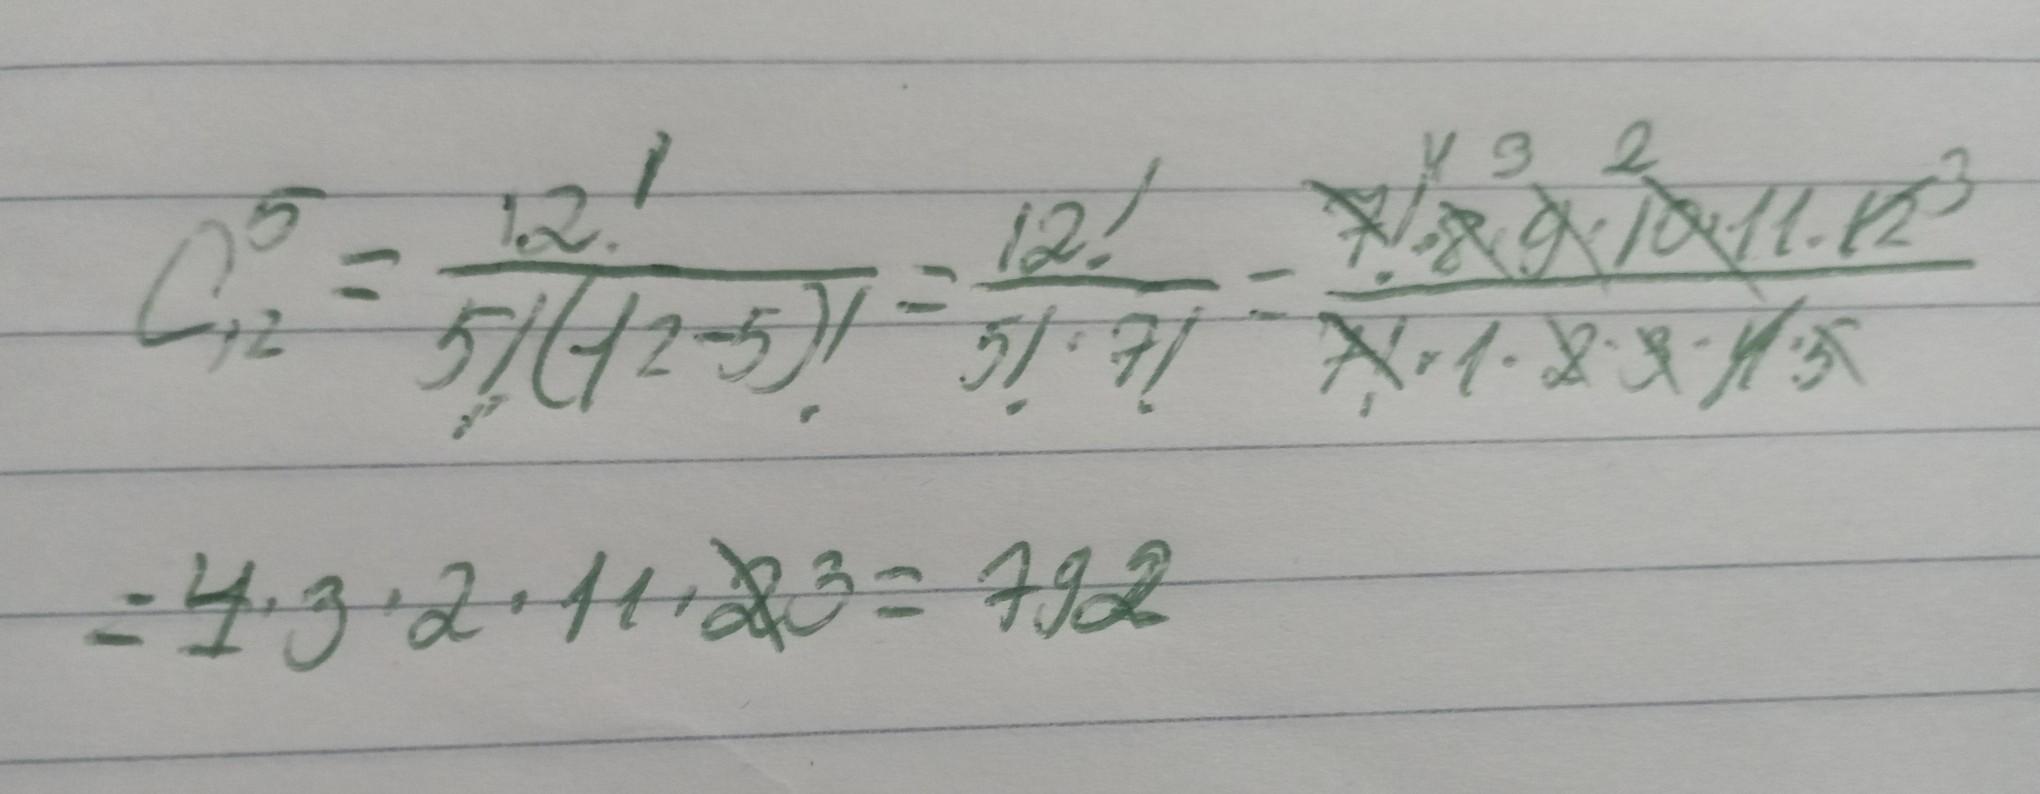 C₁₂⁵ = 12! / 5!(12-5)! = 12! / 5! · 7! = 7! · 8 · 9 · 10 · 11 · 12 / 7! · 1 · 2 · 3 · 4 · 5 4 3 2 3
= 4 · 3 · 2 · 11 · 2 3 = 792